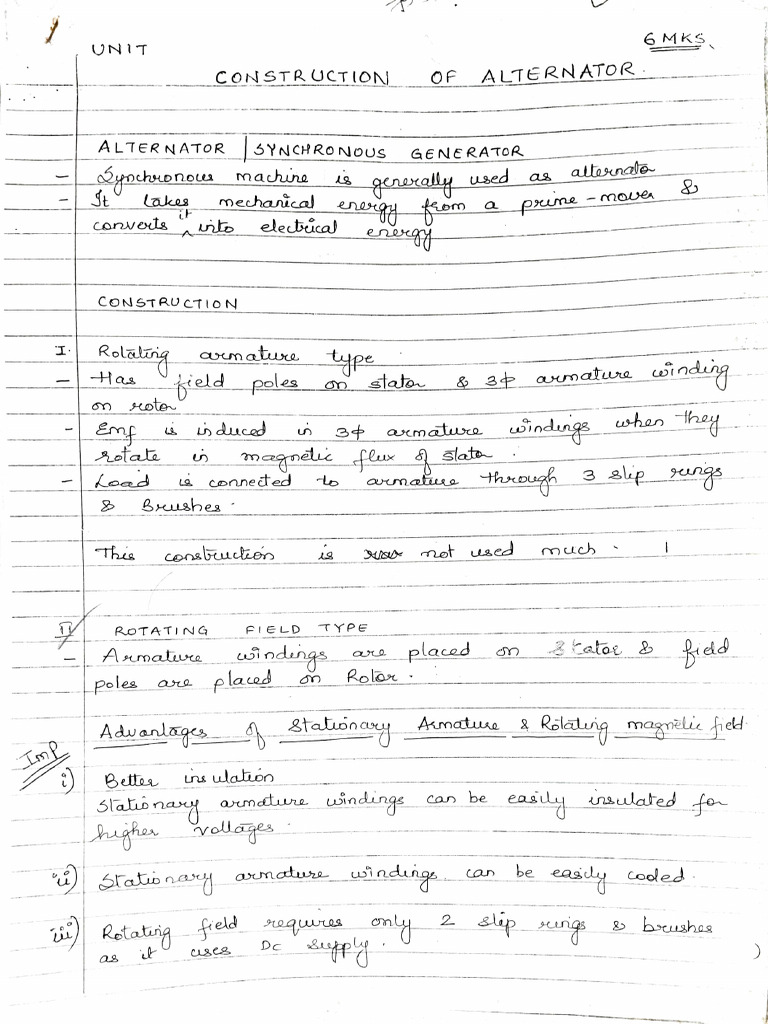 UNIT
6 MKS.
CONSTRUCTION OF ALTERNATOR.
ALTERNATOR | SYNCHRONOUS GENERATOR
- Synchronous machine is generally used as alternator
- It takes mechanical energy from a prime-mover &
converts it into electrical energy
CONSTRUCTION
I. Rotating armature type
- Has field poles on stator & 3ϕ armature winding
on rotor
- Emf is induced in 3ϕ armature windings when they
rotate in magnetic flux of stator.
- Load is connected to armature through 3 slip rings
& Brushes.
This construction is not used much.
II ROTATING FIELD TYPE
- Armature windings are placed on Stator & field
poles are placed on Rotor.
Advantages of Stationary Armature & Rotating magnetic field
Imp
i) Better insulation
Stationary armature windings can be easily insulated for
higher voltages.
ii) Stationary armature windings can be easily cooled.
iii) Rotating field requires only 2 slip rings & brushes
as it uses DC supply.